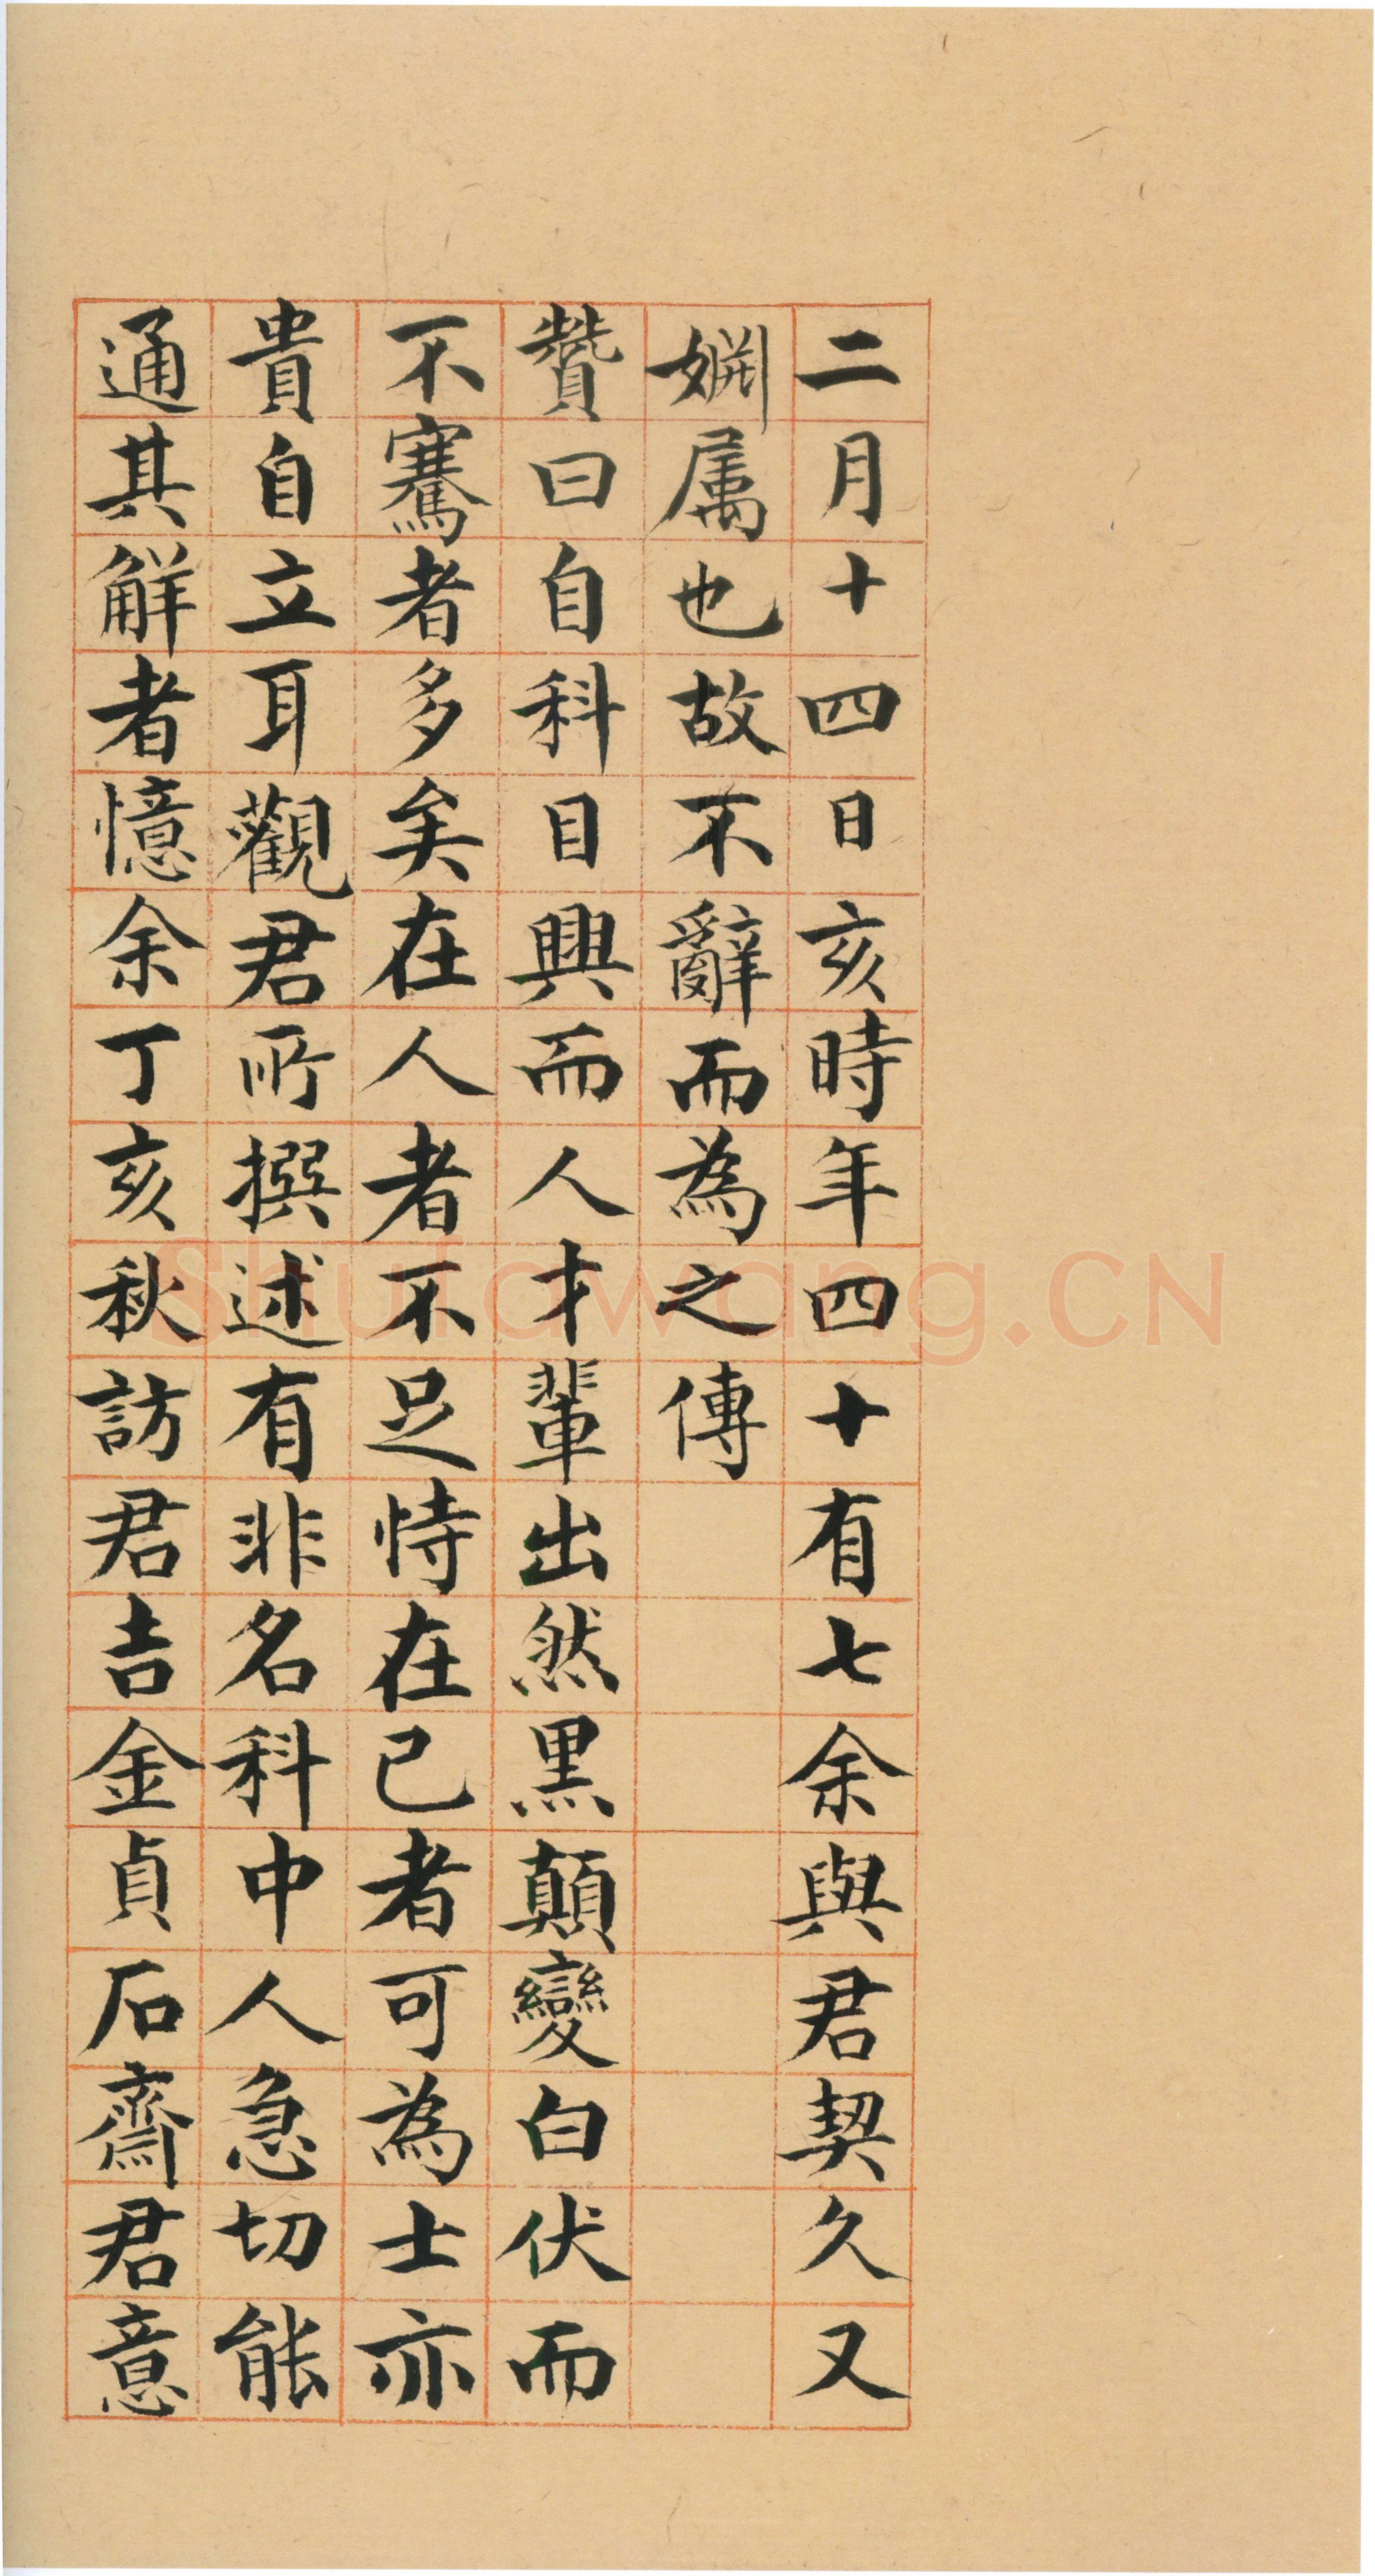 二月十四日亥時年四十有七余與君契久又
姻属也故不辭而為之傳
贊曰自科目興而人才輩出然黑顛變白伏而
不騫者多矣在人者不足恃在已者可為士亦
貴自立耳觀君所撰述有非名科中人急切能
通其解者憶余丁亥秋訪君吉金貞石齋君意
Shufawang.CN